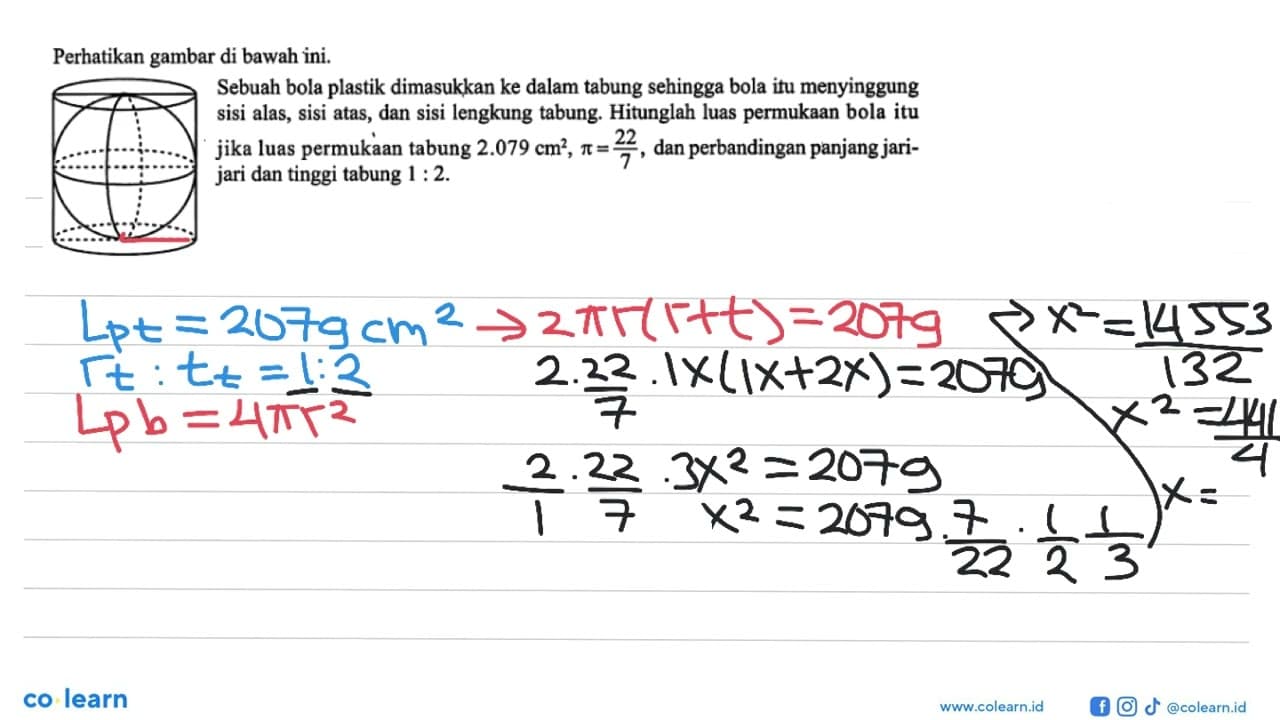 Perhatikan gambar di bawah ini.
Sebuah bola plastik dimasukkan ke dalam tabung sehingga bola itu menyinggung
sisi alas, sisi atas, dan sisi lengkung tabung. Hitunglah luas permukaan bola itu
jika luas permukaan tabung 2.079 cm², π = 22/7, dan perbandingan panjang jari-
jari dan tinggi tabung 1 : 2.
Lpt = 2079 cm² → 2πr(r+t) = 2079
rt : tt = 1:2
Lpb = 4πr²
2 . 22/7 . 1x(1x+2x) = 2079
2/1 . 22/7 . 3x² = 2079
x² = 2079 . 7/22 . 1/2 1/3
x² = 14553/132
x² = 441/4
x =
co·learn
www.colearn.id
@colearn.id